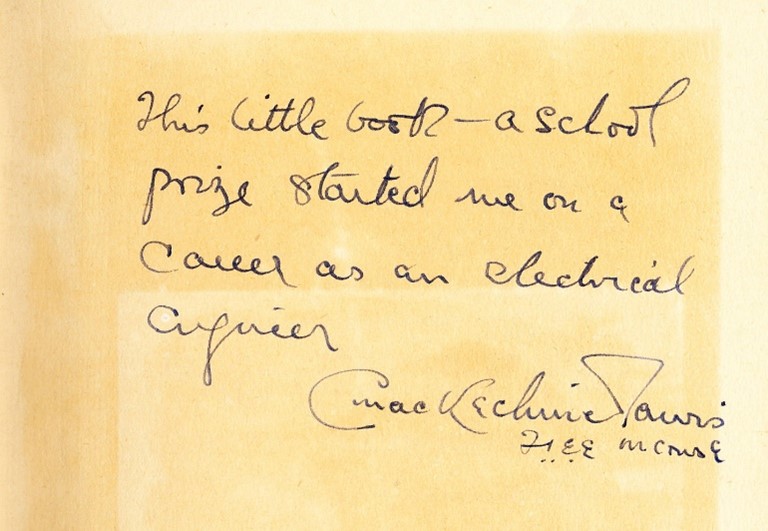 This little book – a school
prize started me on a
career as an electrical
engineer
C MacKechnie Jarvis
FIEE MConsE